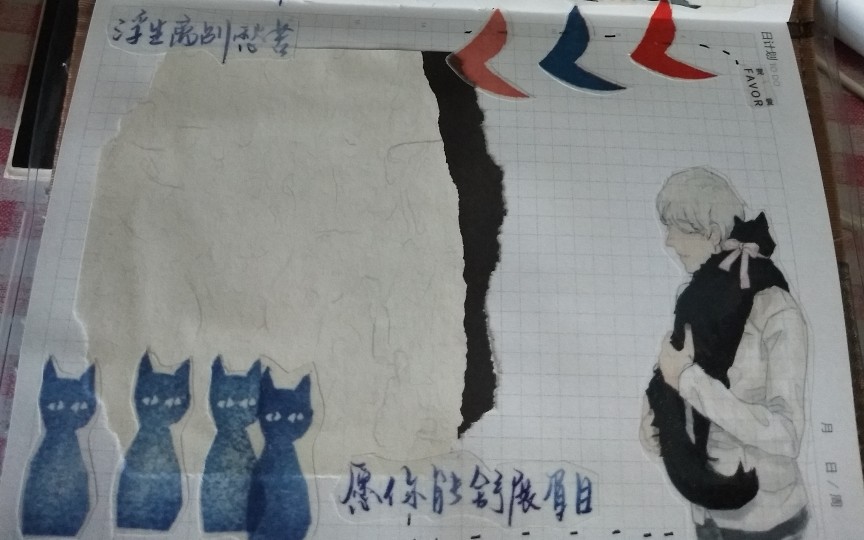 浮生离别愁苦
日计划
FAVOR
愿你能舒展眉目
月 日/周